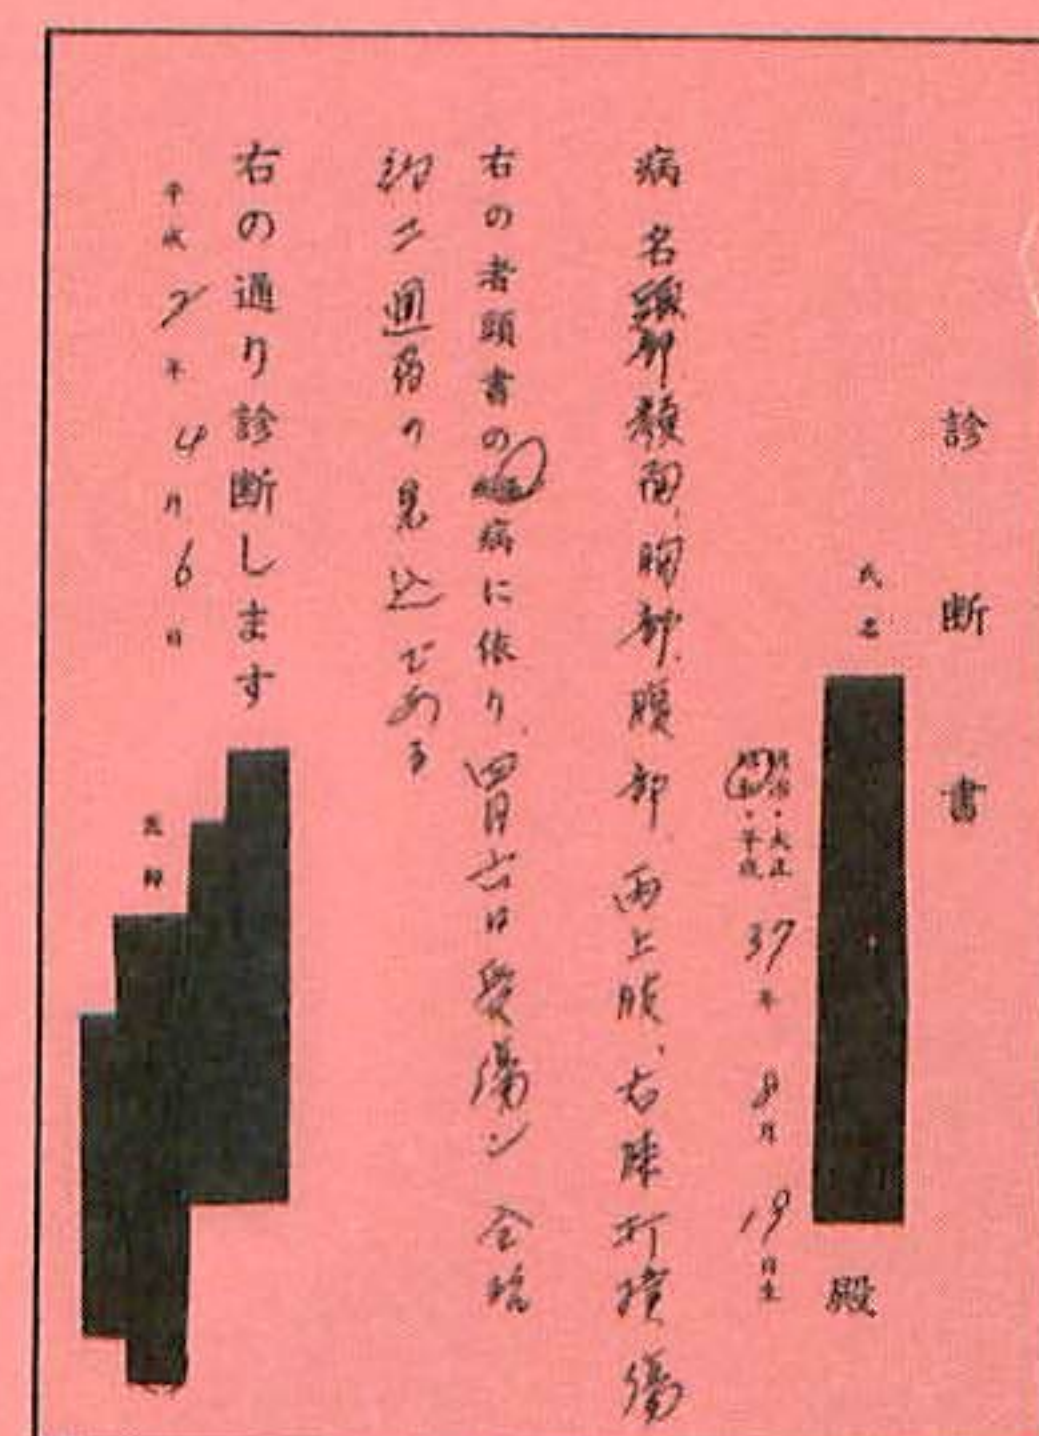 診断書
氏名 殿
明治・大正
昭和・平成 37年 8月 19日生
病名 頭部、顔面、胸部、腹部、両上肢、右膝打撲傷
右の者頭書の病に依り、四月六日受傷シ 全治
約二週間の見込である
右の通り診断します
平成2年4月6日
医師